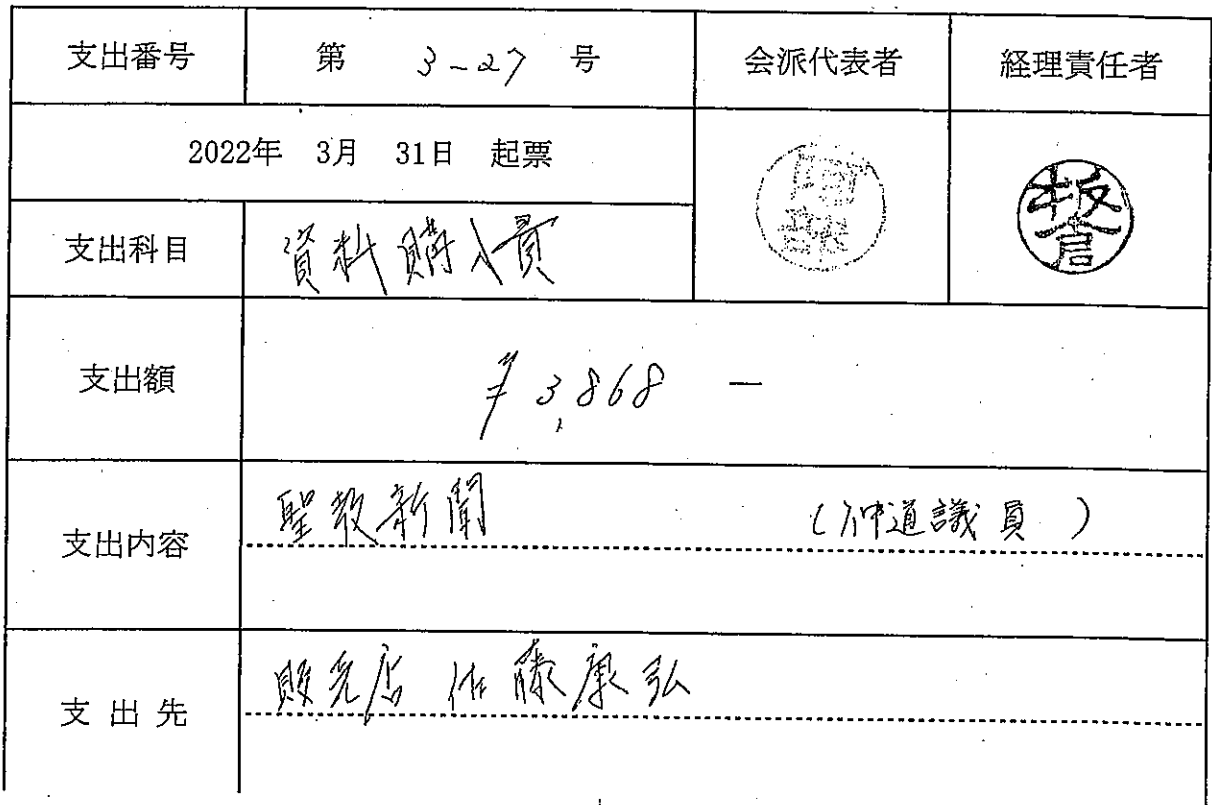 支出番号 第 3-27 号 会派代表者 経理責任者
2022年 3月 31日 起票
阿部
板倉
支出科目 資料購入費
支出額 ¥3,868 ―
支出内容 聖教新聞 (仲道議員)
支出先 販売店 佐藤康弘